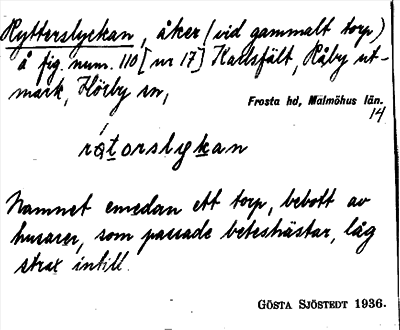 Rytterslyckan, åker (vid gammalt torp)
å fig. num. 110 [nr 17] Karlsfält, Råby ut-
mark, Hörby sn,
Frosta hd, Malmöhus län.
14
rátorslykan
Namnet emedan ett torp, bebott av
husarer, som passade beteshästar, låg
strax intill.
GÖSTA SJÖSTEDT 1936.